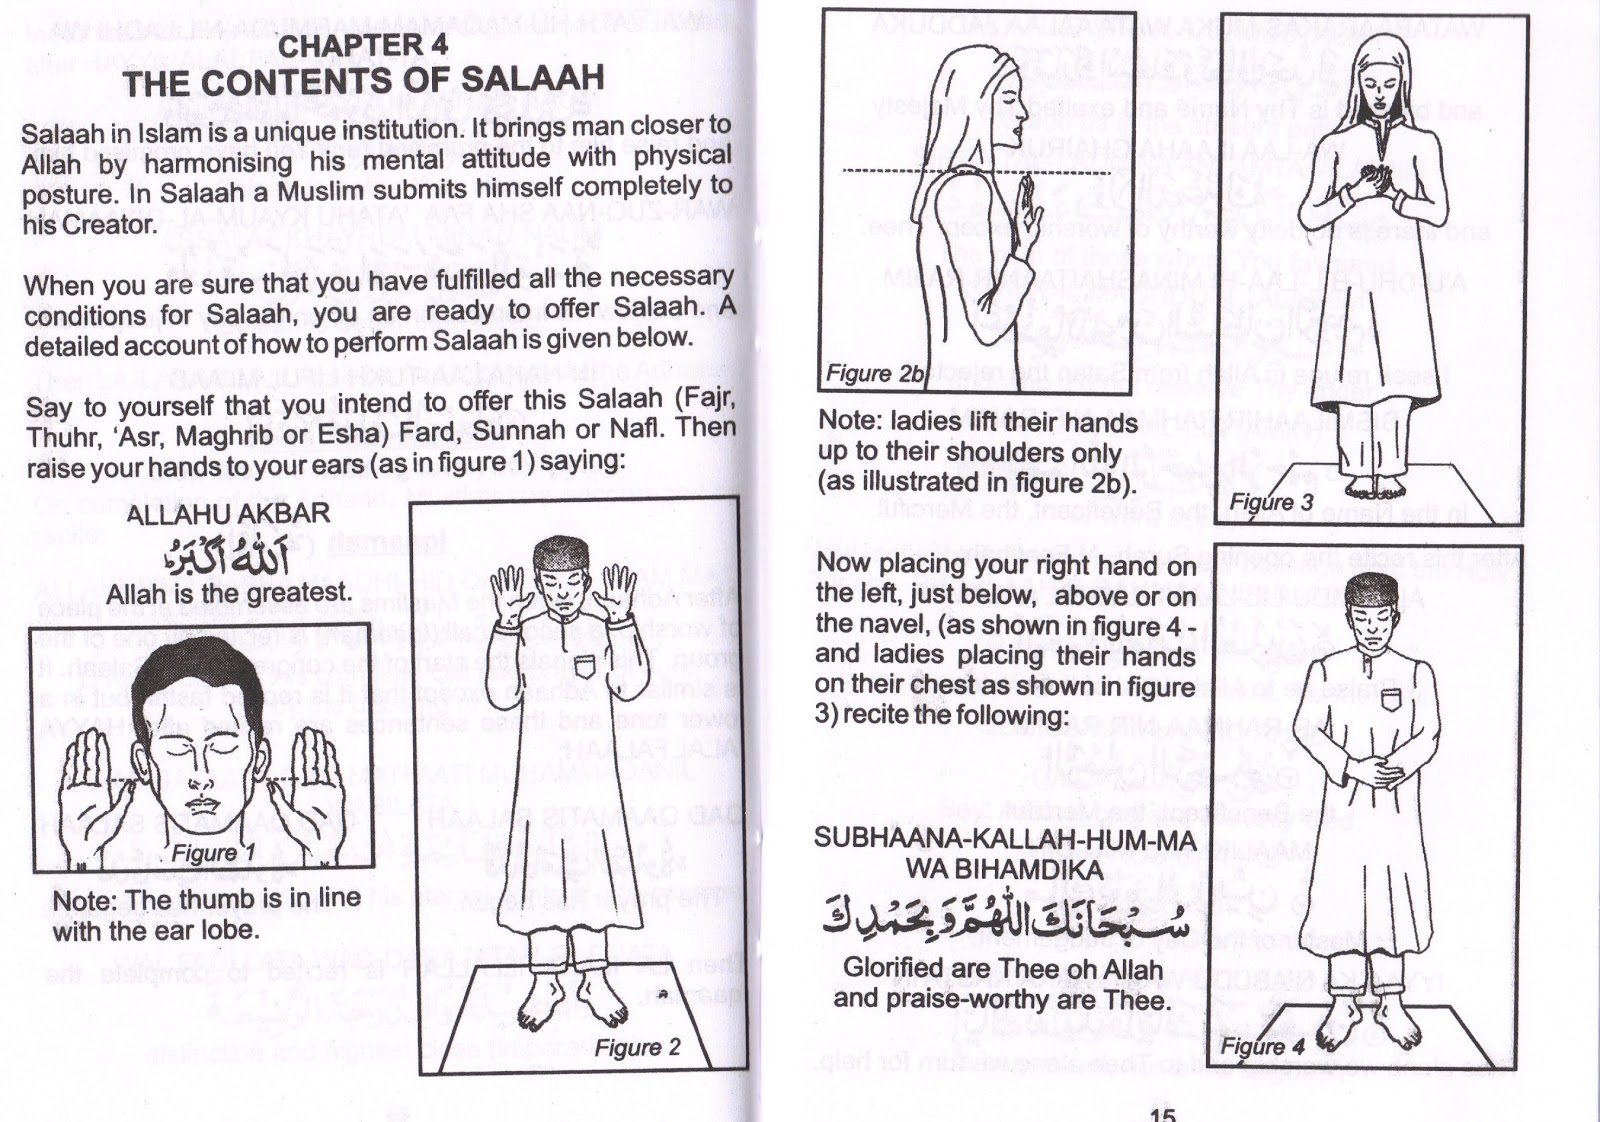 CHAPTER 4
THE CONTENTS OF SALAAH
Salaah in Islam is a unique institution. It brings man closer to
Allah by harmonising his mental attitude with physical
posture. In Salaah a Muslim submits himself completely to
his Creator.
When you are sure that you have fulfilled all the necessary
conditions for Salaah, you are ready to offer Salaah. A
detailed account of how to perform Salaah is given below.
Say to yourself that you intend to offer this Salaah (Fajr,
Thuhr, ‘Asr, Maghrib or Esha) Fard, Sunnah or Nafl. Then
raise your hands to your ears (as in figure 1) saying:
ALLAHU AKBAR
اَللهُ اَكْبَرُ
Allah is the greatest.
Figure 1
Note: The thumb is in line
with the ear lobe.
Figure 2
Figure 2b
Note: ladies lift their hands
up to their shoulders only
(as illustrated in figure 2b).
Figure 3
Now placing your right hand on
the left, just below, above or on
the navel, (as shown in figure 4 -
and ladies placing their hands
on their chest as shown in figure
3) recite the following:
SUBHAANA-KALLAH-HUM-MA
WA BIHAMDIKA
سُبْحَانَكَ اللّٰهُمَّ وَ بِحَمْدِكَ
Glorified are Thee oh Allah
and praise-worthy are Thee.
Figure 4
15